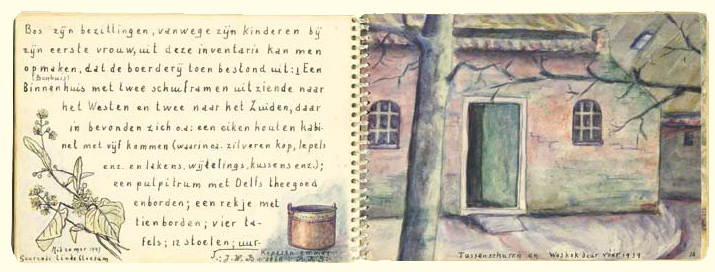 Bos zijn bezittingen, vanwege zijn kinderen bij
zijn eerste vrouw, uit deze inventaris kan men
opmaken, dat de boerderij toen bestond uit: 1 Een
Binnenhuis met twee schuiframen uitziende naar
het Westen en twee naar het Zuiden, daar
in bevonden zich o.a: een eiken houten kabi-
net met vijf kommen (waarin o.a. zilveren kop, lepels
enz. en lakens, wijtelings, kussens enz.);
een pulpitrum met Delfs theegoed
enborden; een rekje met
tienborden; vier ta-
fels; 12 stoelen; uur-
Midzomer
Lindebloesem
Koperen emmer
Tussenschuren en Waskok deur vóór 1934